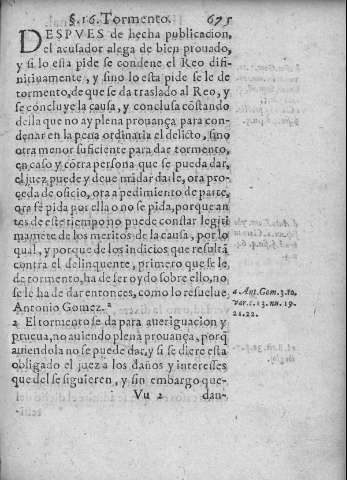 §.16. Tormento. 675
DESPVES de hecha publicacion,
el acusador alega de bien prouado,
y si lo esta pide se condene el Reo difi-
nitiuamente, y sino lo esta pide se le de
tormento, de que se da traslado al Reo, y
se concluye la causa, y conclusa cõstando
della que no ay plena prouança para con-
denar en la pena ordinaria el delicto, sino
otra menor suficiente para dar tormento,
en caso y cõtra persona que se pueda dar,
el juez puede y deue mãdar darle, ora pro-
ceda de oficio, ora a pedimiento de parte,
ora se pida por ella o no se pida, porque an
tes de este tiempo no puede constar legiti
mamẽte de los meritos de la causa, por lo
qual, y porque de los indicios que resultã
contra el delinquente, primero que se le
de tormento, ha de ser oydo sobre ello, no
se le ha de dar entonces, como lo resuelue
Antonio Gomez. a
a. Ant. Gom. 3. to.
var. c. 13. nu. 19.
21. 22.
2 El tormento se da para aueriguacion y
prueua, no auiendo plena prouança, porq̃
auiendola no se puede dar, y si se diere esta
obligado el juez a los daños y interesses
que del se siguieren, y sin embargo que-
Vu 2 dau-